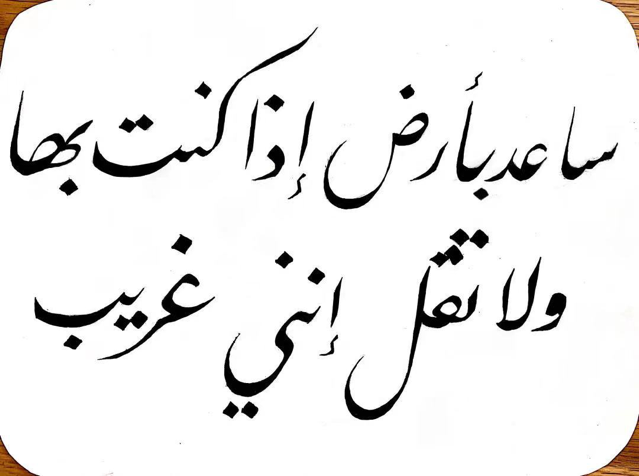 ساعد بأرض إذا كنت بها
ولا تقل إنني غريب